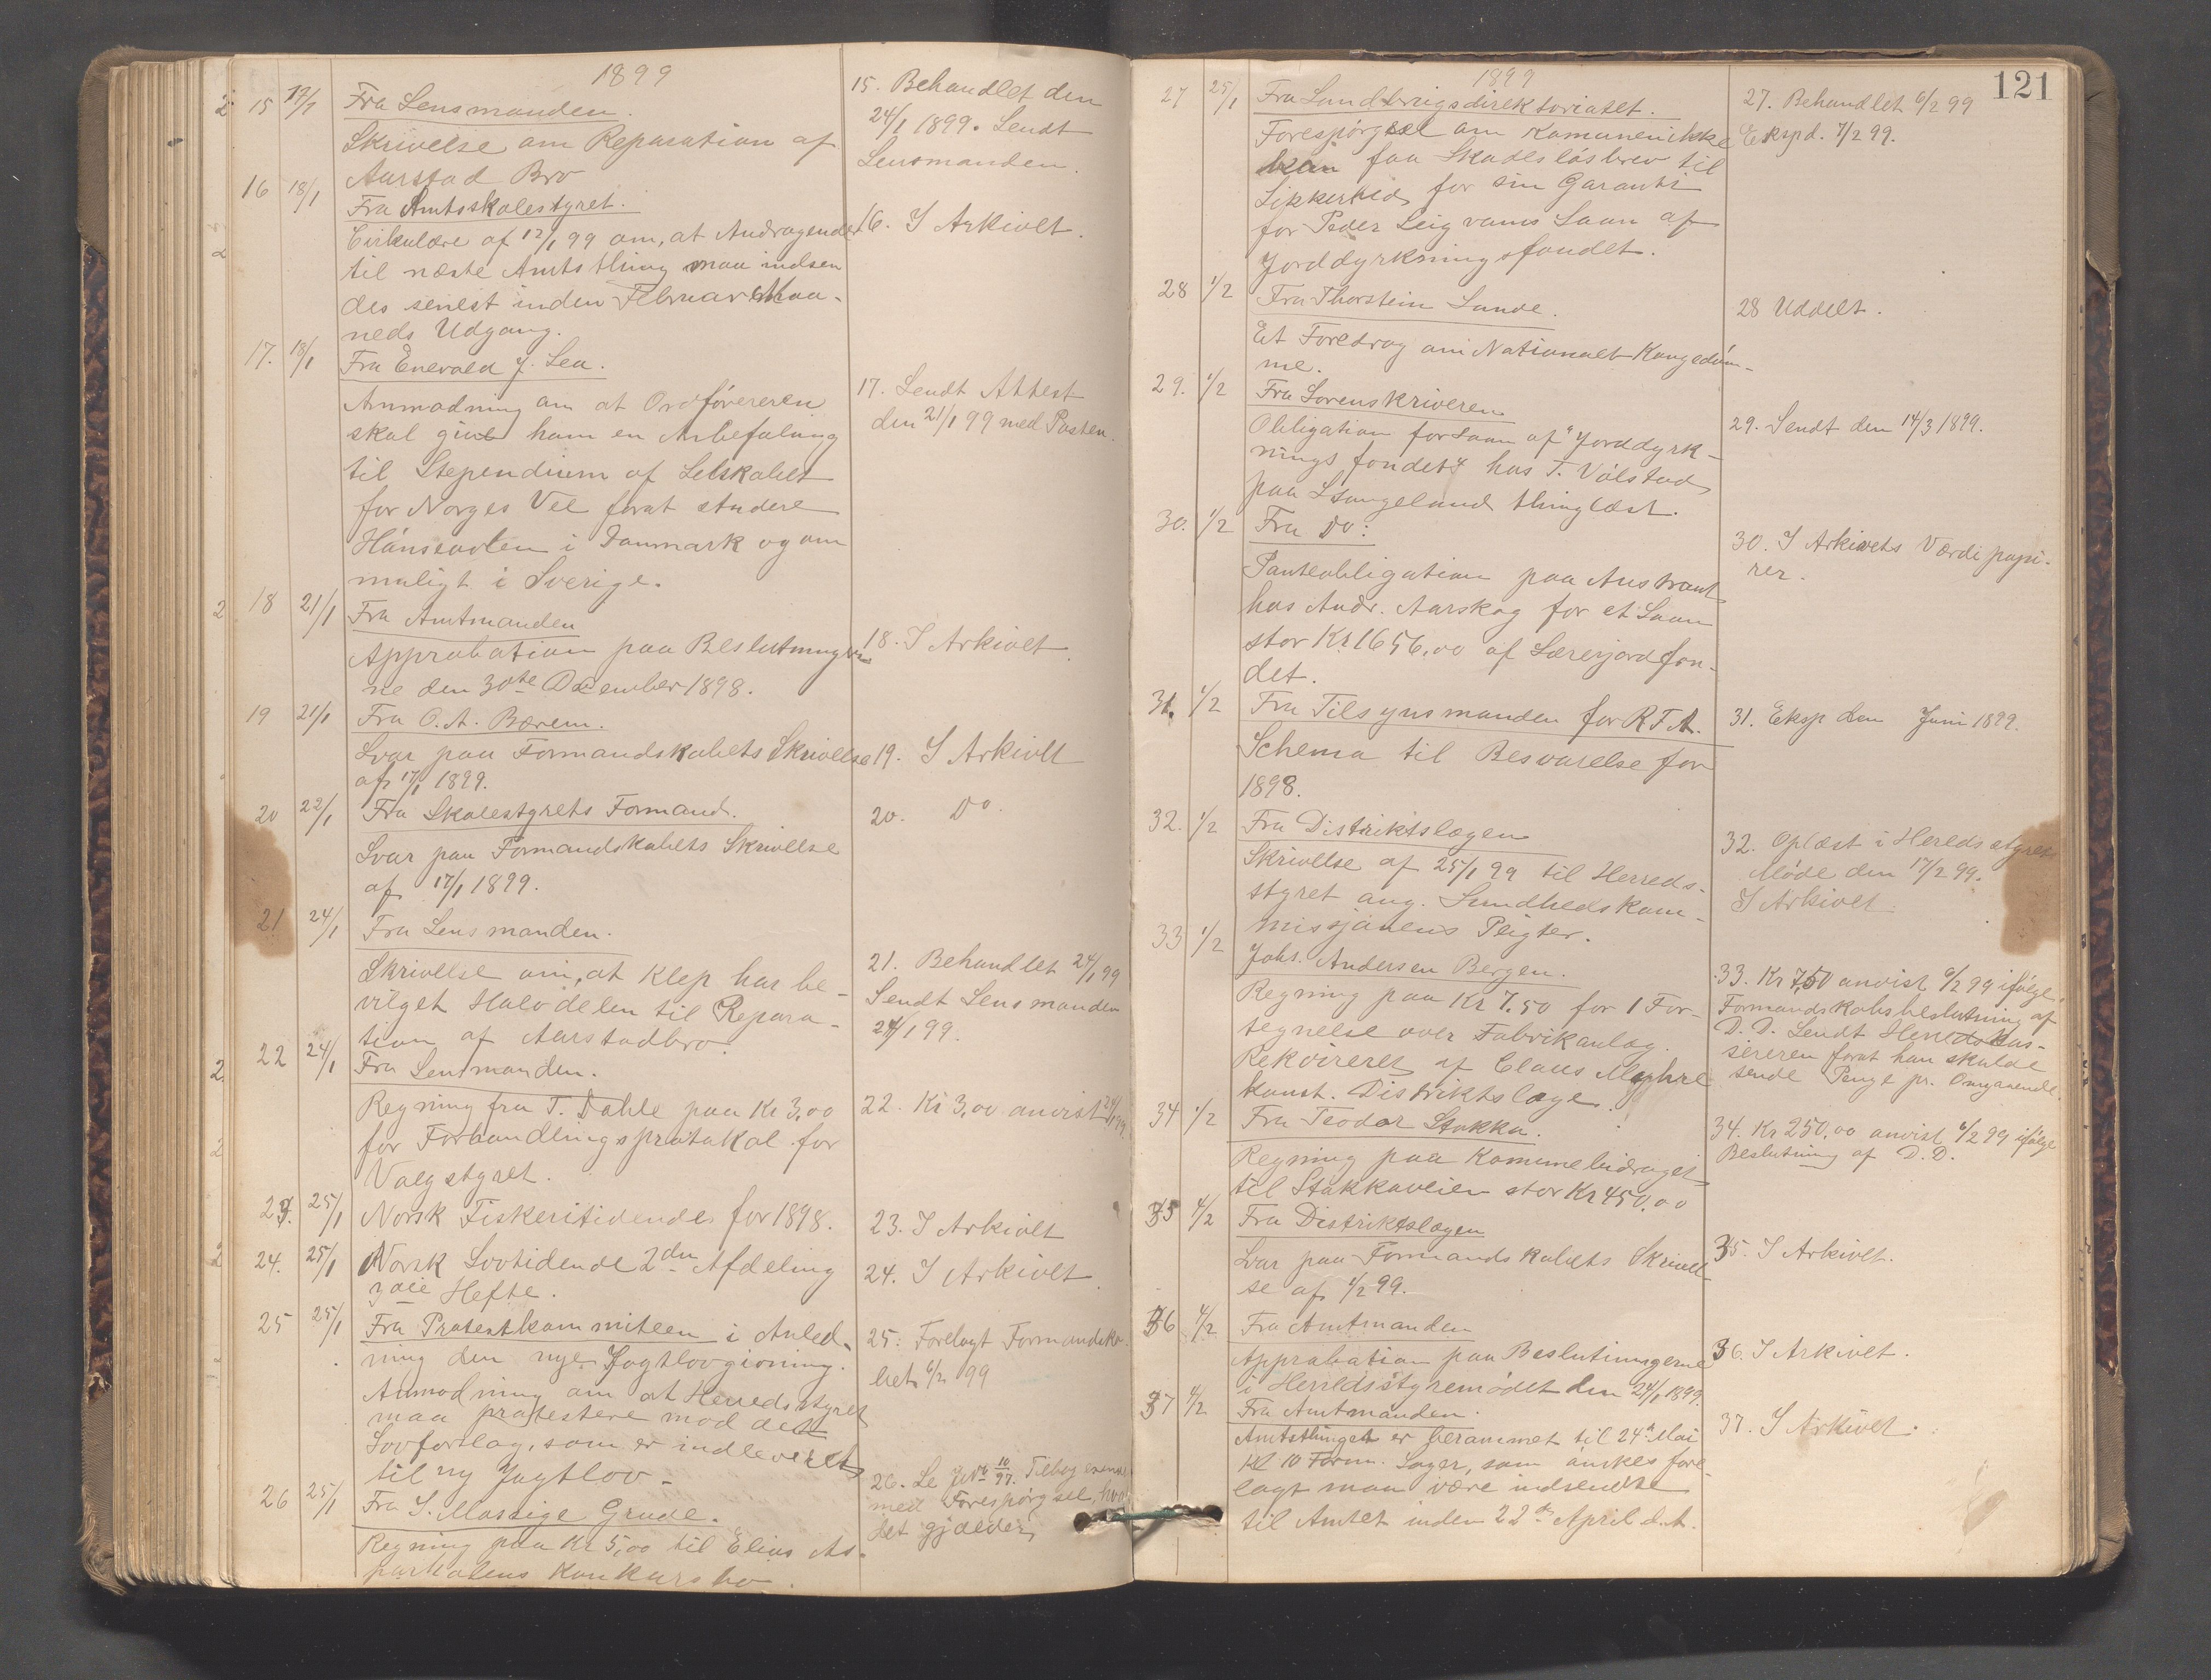 1899
15 17/1 Fra Lensmanden.
Skrivelse om Reparation af
Aarstad Bro
15. Behandlet den
24/1 1899. Sendt
Lensmanden.
16 18/1 Fra Amtsskolestyret.
Cirkulære af 12/1 99 om, at Andragender
til næste Amtsthing maa indsen
des senest inden Februar Maa-
neds Udgang.
16. I Arkivet.
17. 18/1 Fra Enevald J. Lea.
Anmodning om at Ordføreren
skal give ham en Anbefaling
til Stependium af Selskabet
for Norges Vel forat studere
Hønsavlen i Danmark og om
muligt i Sverige.
17. Sendt Attest
den 21/1 99 med Posten.
18 21/1 Fra Amtmanden
Approbation paa Beslutninger
ne den 30te December 1898.
18. I Arkivet.
19 21/1 Fra O. A. Bærem.
Svar paa Formandskabets Skrivelse
af 17/1 1899.
19. I Arkivet
20 22/1 Fra Skolestyrets Formand.
Svar paa Formandskabets Skrivelse
af 17/1 1899.
20. Do.
21 24/1 Fra Lensmanden.
Skrivelse om, at Klep har be-
vilget Halvdelen til Repara-
tion af Aarstadbro.
21. Behandlet 24/1 99
Sendt Lensmanden
24/1 99.
22 24/1 Fra Lensmanden.
Regning fra T. Dahle paa Kr 3,00
for Forhandlingsprotokol for
Valgstyret.
22. Kr 3,00 anvist 24/1 99
23. 25/1 Norsk Fiskeritidende for 1898.
23. I Arkivet
24. 25/1 Norsk Lovtidende 2den Afdeling
3die Hefte.
24. I Arkivet
25 25/1 Fra Protestkommiteen i Anled-
ning den nye Jagtlovgivning.
Anmodning om at Herredsstyret
maa protestere mod det
Lovforslag, som er indleveret
til ny Jagtlov.
25. Forelagt Formandska-
bet 6/2 99
26 25/1 Fra S. Massige Grude.
Regning paa Kr 5,00 til Elias As-
Konkursbo.
26. Se Jvr 10/97. Tilbag
med Forespørgsel, hva
det gjælder
121
1899
27 25/1 Fra Landbrugsdirektoriatet.
Forespørgsel om Komunen ikke
kan faa Skadesløsbrev til
Sikkerhed for sin Garanti
for Peder Leigvams Laan af
Jorddyrkningsfondet.
27. Behandlet 6/2 99
Ekspd. 7/2 99.
28 1/2 Fra Thorstein Lunde.
Et Foredrag om Nationalt Kongedøm-
me.
28 Uddelt.
29. 1/2 Fra Sorenskriveren
Obligation for Laan af "Jorddyrk-
ningsfondet" hos T. Vølstad
paa Stangeland thinglæst.
29. Sendt den 14/3 1899.
30. 1/2 Fra Do:
Panteobligation paa Austraat
hos Andr. Aarskog for et Laan
stor Kr 1656,00 af Lærerjordfon-
det.
30. I Arkivets Værdipapi-
rer.
31. 1/2 Fra Tilsynsmanden for R F A.
Schema til Besvarelse for
1898.
31. Eksp den Juni 1899.
32. 1/2 Fra Distriktslægen
Skrivelse af 25/1 99 til Herreds-
styret ang. Sundhedskom-
missjonens Pligter.
32. Oplæst i Heredsstyrets
Møde den 17/2 99.
I Arkivet
33 1/2 Johs. Andersen Bergen.
Regning paa Kr 7.50 for 1 For-
tegnelse over Fabrikanlæg.
Rekvireret af Claus Myhre
konst. Distriktslæge.
33. Kr 7,50 anvist 6/2 99 ifølge
Formandskabsbeslutning af
D. D. Sendt Herredskas-
sereren forat han skulde
sende Penge pr. Omgaaende.
34 1/2 Fra Teodor Stokka.
Regning paa Komunebidraget
til Stokkaveien stor Kr 450,00
34. Kr 250,00 anvist 6/2 99 ifølge
Beslutning af D. D.
35 4/2 Fra Distriktslægen
Svar paa Formandskabets Skrivel-
se af 1/2 99.
35. I Arkivet.
36 4/2 Fra Amtmanden
Approbation paa Beslutningerne
i Herredsstyremødet den 24/1 1899.
36. I Arkivet.
37 4/2 Fra Amtmanden.
Amtsthinget er berammet til 24de Mai
Kl 10 Form. Sager, som ønskes fore-
lagt maa være indsendte
til Amtet inden 22de April d. A.
37. I Arkivet.